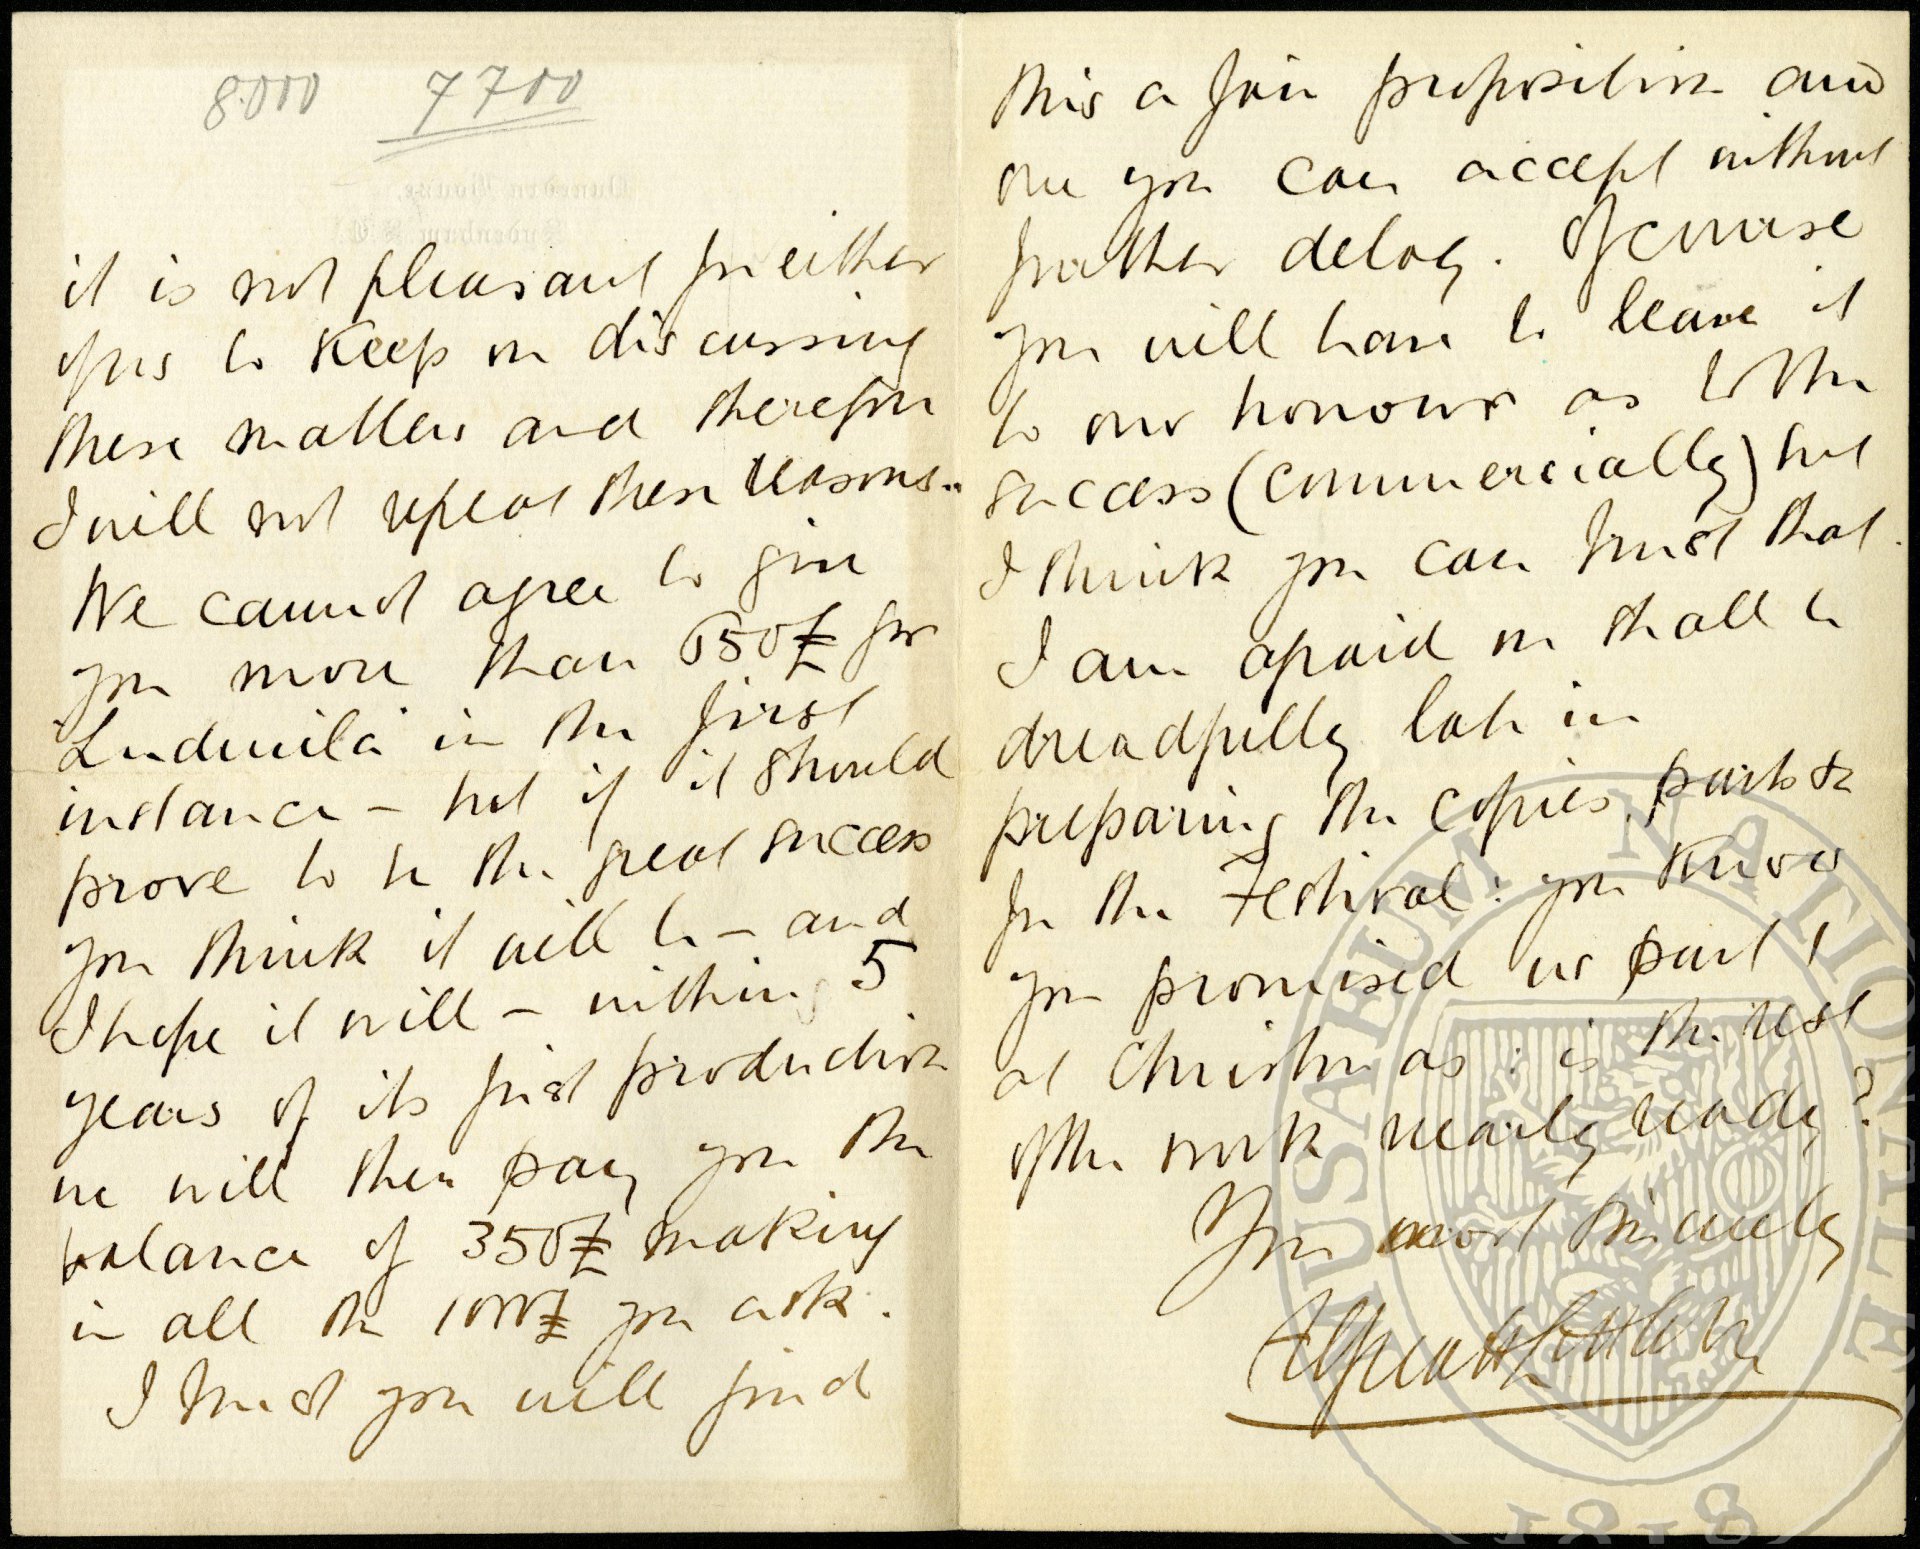 8000 7700
it is not pleasant for either
of us to keep on discussing
these matters and therefore
I will not repeat these reasons.
We cannot agree to give
you more than 650£ for
Ludmila in the first
instance – but if it should
prove to be the great success
you think it will be – and
I hope it will – within 5
years of its first production
we will then pay you the
balance of 350£ making
in all the 1000£ you ask.
I trust you will find
this a fair proposition and
one you can accept without
further delay. Of course
you will have to leave it
to our honour as to the
success (commercially) but
I think you can trust that.
I am afraid we shall be
dreadfully late in
preparing the copies, parts &c
for the Festival: you know
you promised us part 1
at Christmas: is the rest
of the work nearly ready?
Your most sincerely
Alfred H Littleton
MUSAEUM NATIONALE
1818